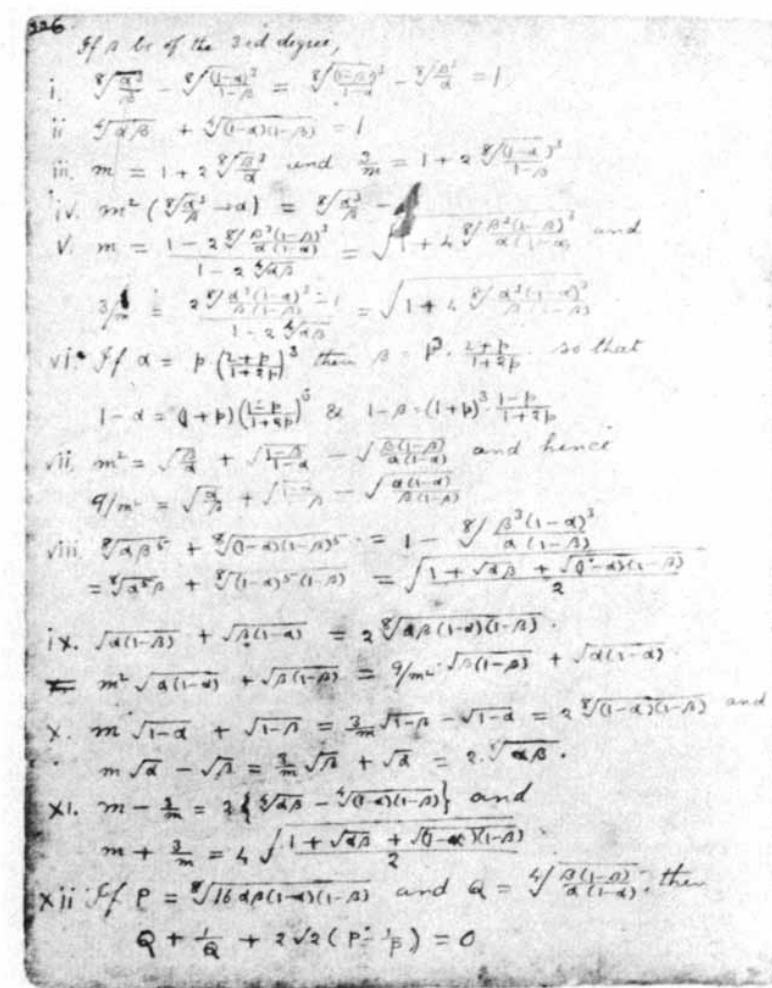 226.
If β be of the 3rd degree,
i. ⁸√(α³/β) - ⁸√((1-α)³/(1-β)) = ⁸√((1-β)³/(1-α)) - ⁸√(β³/α) = 1.
ii ⁴√(αβ) + ⁴√((1-α)(1-β)) = 1
iii. m = 1 + 2 ⁸√(β³/α) and 3/m = 1 + 2 ⁸√((1-α)³/(1-β))
iv. m² (⁸√(α³/β) - α) = ⁸√(α³/β) -
v. m = (1 - 2 ⁸√(β³(1-β)³/(α(1-α))))/(1 - 2 ⁴√(αβ)) = √(1 + 4 ⁸√(β³(1-β)³/(α(1-α)))) and
3/m = (2 ⁸√(α³(1-α)³/(β(1-β))) - 1)/(1 - 2 ⁴√(αβ)) = √(1 + 4 ⁸√(α³(1-α)³/(β(1-β))))
vi. If α = p ((2+p)/(1+2p))³ then β = p³. (2+p)/(1+2p) so that
1-α = (1+p)((1-p)/(1+2p))³ & 1-β = (1+p)³. (1-p)/(1+2p)
vii. m² = √(β/α) + √((1-β)/(1-α)) - √(β(1-β)/(α(1-α))) and hence
9/m² = √(α/β) + √((1-)/β) - √(α(1-α)/(β(1-β)))
viii. ⁸√(αβ⁵) + ⁸√((1-α)(1-β)⁵) = 1 - ⁸√(β³(1-α)³/(α(1-β)))
= ⁸√(α⁵β) + ⁸√((1-α)⁵(1-β)) = √((1 + √(αβ) + √((1-α)(1-β)))/2)
ix. √(α(1-β)) + √(β(1-α)) = 2 ⁸√(αβ(1-α)(1-β)).
= m² √(α(1-α)) + √(β(1-β)) = 9/m² √(β(1-β)) + √(α(1-α))
x. m √(1-α) + √(1-β) = 3/m √(1-β) - √(1-α) = 2 ⁸√((1-α)(1-β)) and
m√α - √β = 3/m √β + √α = 2. ⁸√(αβ).
xi. m - 3/m = 2 {⁴√(αβ) - ⁴√((1-α)(1-β))} and
m + 3/m = 4 √((1 + √(αβ) + √((1-α)(1-β)))/2)
xii If P = ⁸√(16αβ(1-α)(1-β)) and Q = ⁴√(β(1-β)/(α(1-α))), then
Q + 1/Q + 2√2 (P - 1/P) = 0